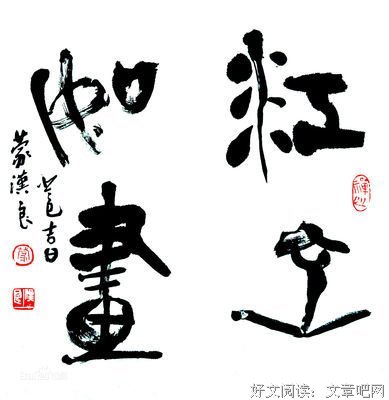 江山
如畫
吉日
蒙漢良
好文阅读：文章吧网